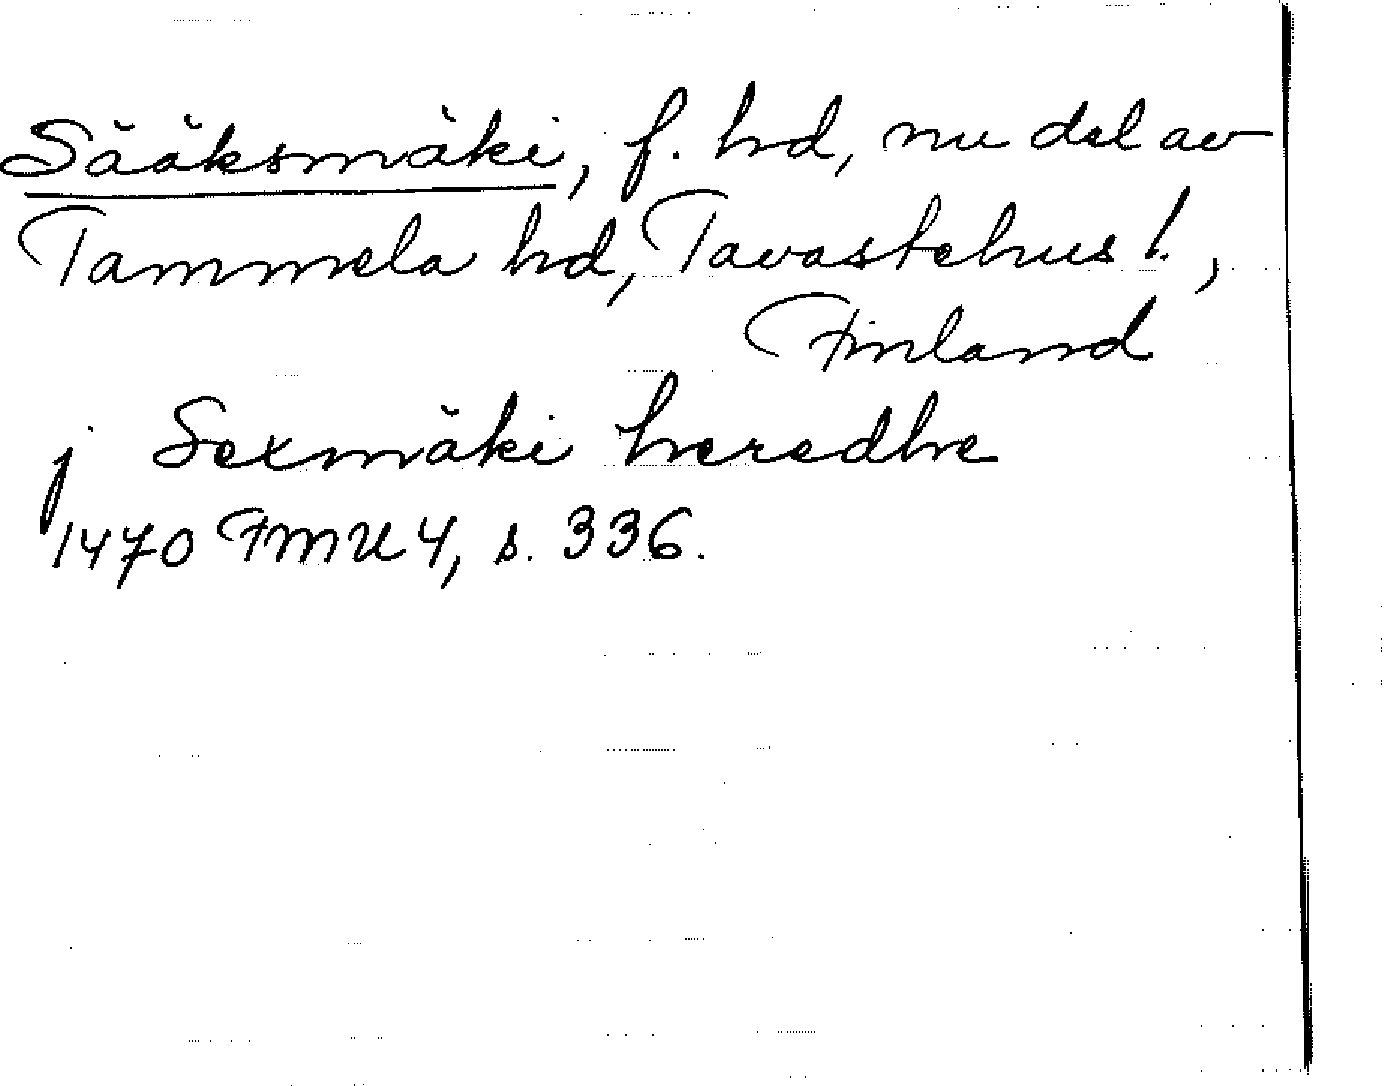 Sääksmäki, f. hd, nu del av
Tammela hd, Tavastehus l.,
Finland
j Sexmäki heredhe
1470 FMU 4, s. 336.